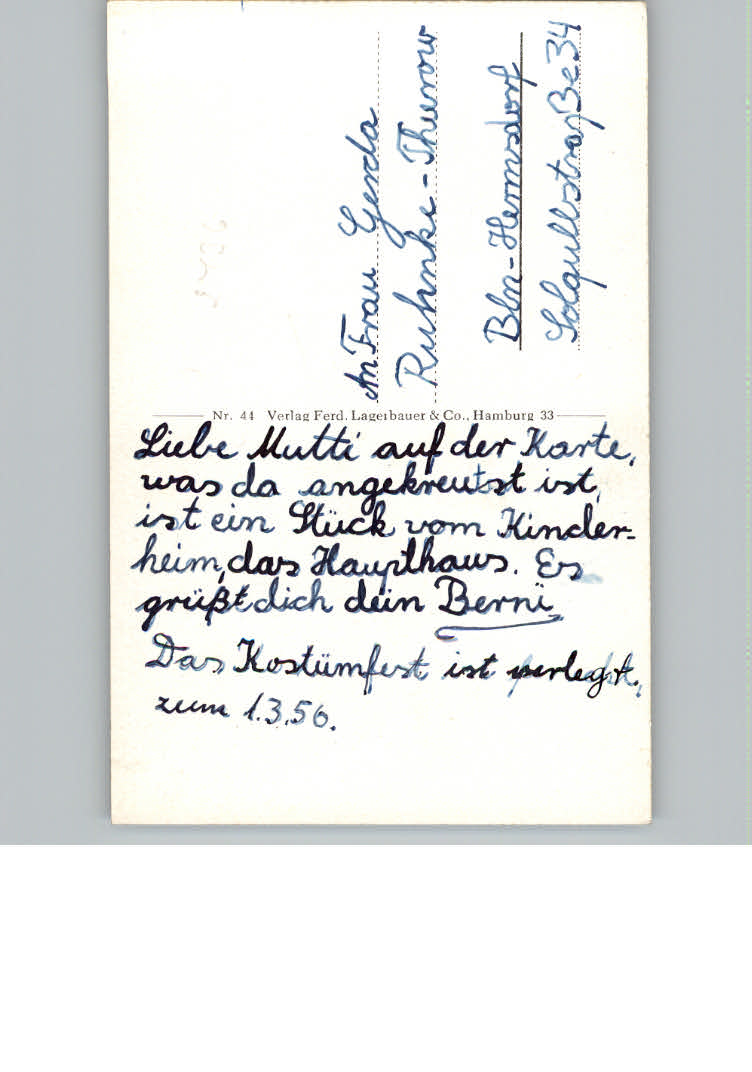 An Frau Gerda
Ruhnke-Thurow
Bln-Hermsdorf
Solquellstraße 34
Nr. 44 Verlag Ferd. Lagerbauer & Co., Hamburg 33
Liebe Mutti auf der Karte,
was da angekreutst ist,
ist ein Stück vom Kinder-
heim, das Haupthaus. Es
grüßt dich dein Berni
Das Kostümfest ist verlegt,
zum 1.3.56.